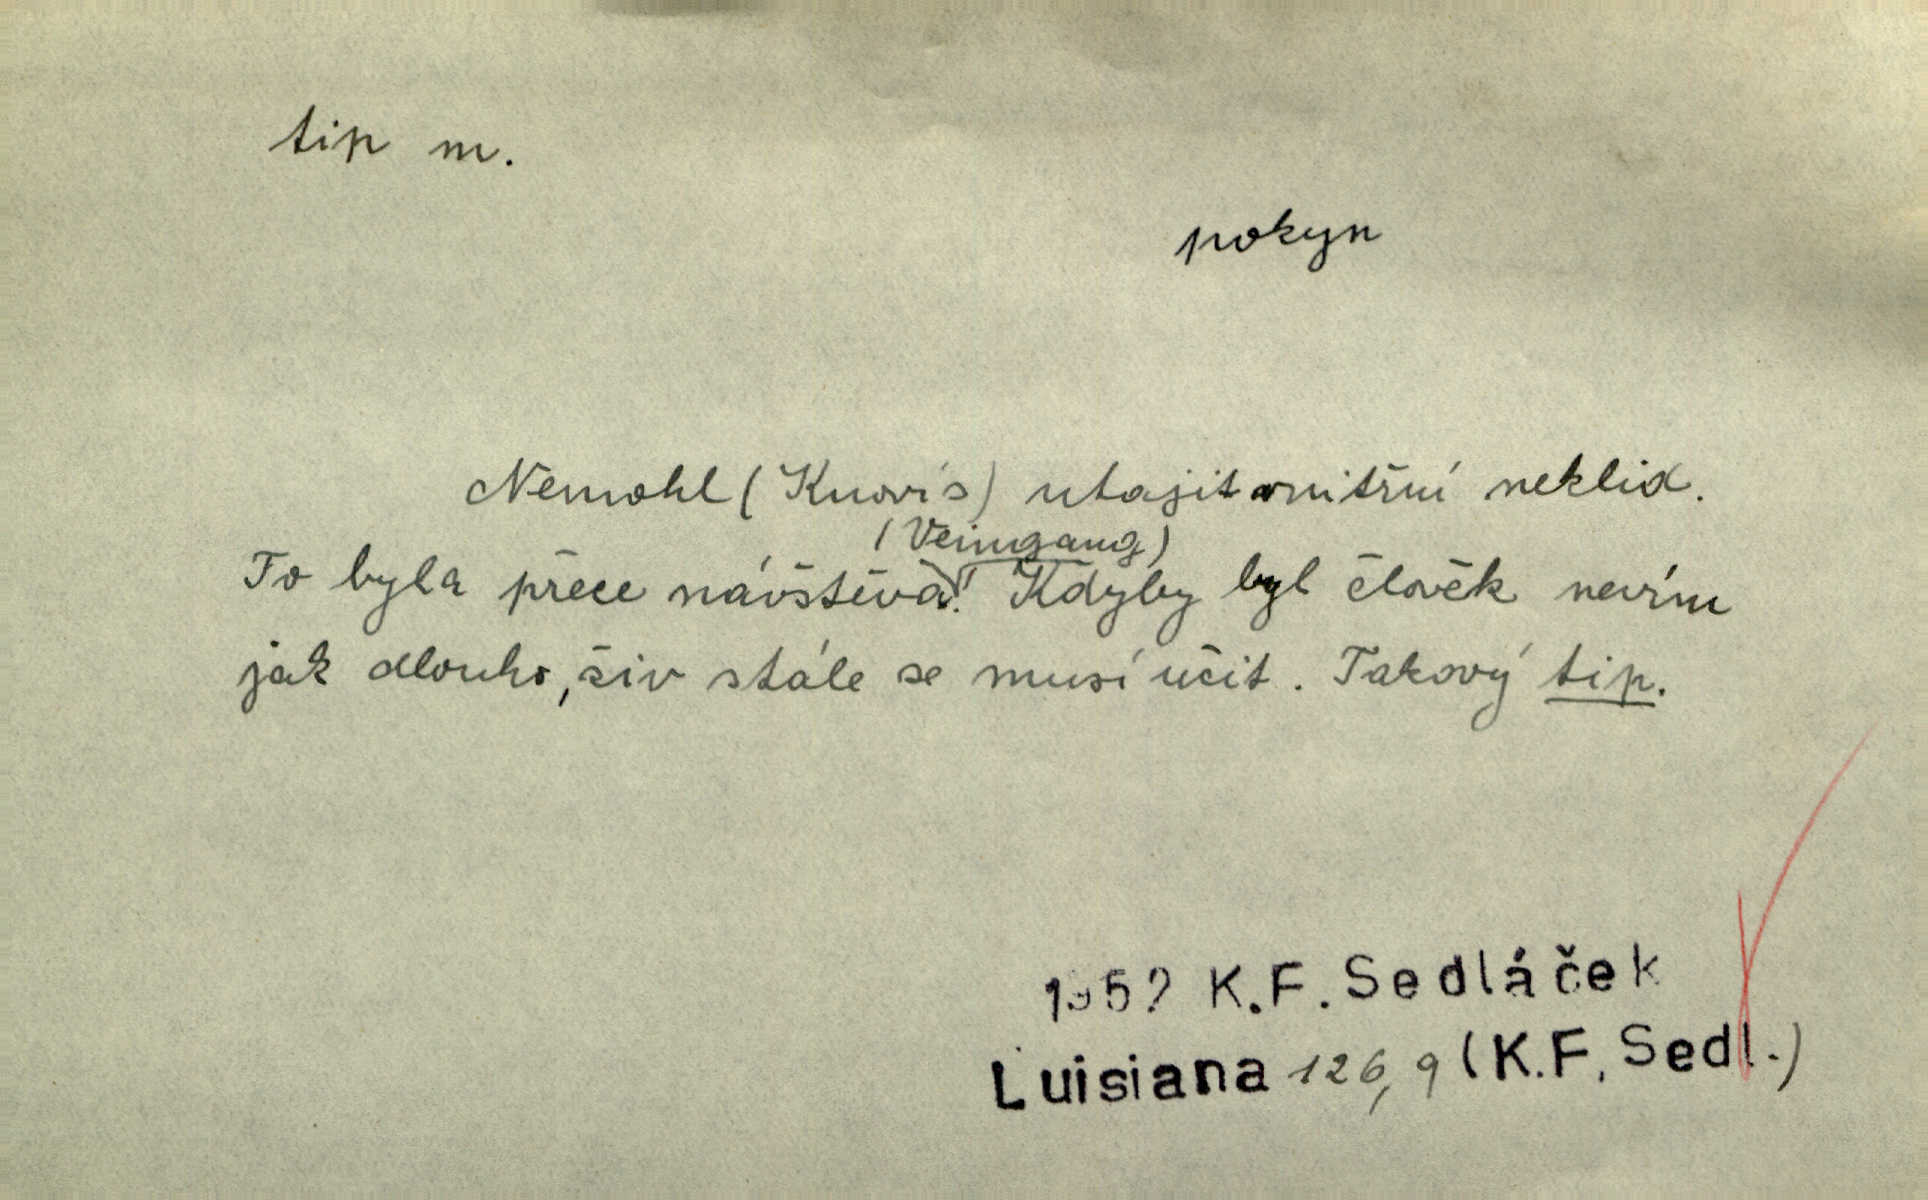 tip m.
pokyn
Nemohl (Knovís) utajit vnitřní neklid.
(Veimgang)
To byla přece návštěva! Kdyby byl člověk nevím
jak dlouho, živ stále se musí učit. Takový tip.
1952 K.F. Sedláček
Luisiana 126,9 (K.F. Sedl.)